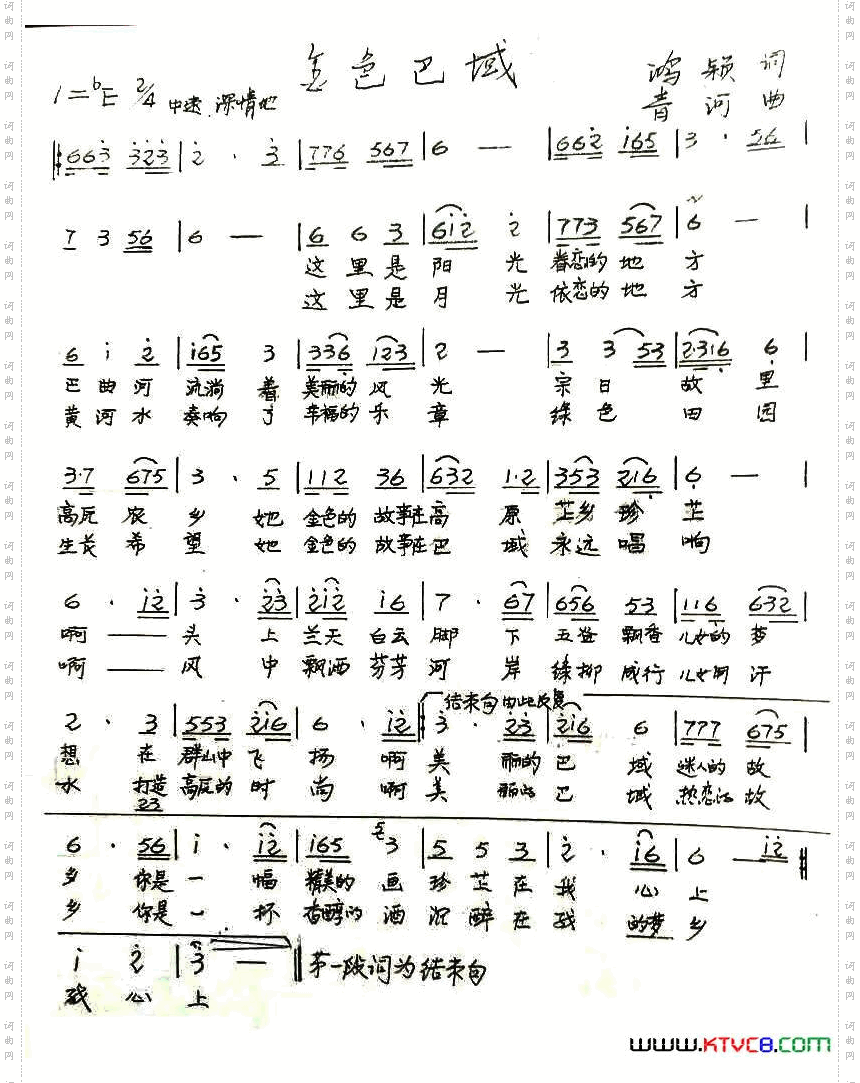 金色巴域
1=♭E 2/4 中速 深情地
鸿颖 词
青河 曲
663 323 | 2 · 3 | 776 567 | 6 — | 662 165 | 3 · 56 |
7 3 56 | 6 — | 6 6 3 | 612 2 | 773 567 | 6 — |
这里是阳光眷恋的地方
这里是月光依恋的地方
6 1 2 | 165 3 | 336 123 | 2 — | 3 3 53 | 2·316 6 |
巴曲河流淌着美丽的风光 宗日故里
黄河水奏响了幸福的乐章 绿色田园
3·7 675 | 3 · 5 | 112 36 | 632 1·2 | 353 216 | 6 — |
高原农乡 她金色的故事在高原 芷乡珍芷
生长希望 她金色的故事在巴域 永远唱响
6 · 12 | 3 · 23 | 212 16 | 7 · 67 | 656 53 | 116 632 |
啊——头上兰天白云脚下五谷飘香儿女的梦
啊——风中飘洒芬芳河岸绿柳成行儿女的汗
结束句由此反复
2 · 3 | 553 216 | 6 · 12 | 3 · 23 | 216 6 | 777 675 |
想在群山中飞扬 啊美丽的巴域迷人的故
水打造高原的时尚 啊美丽的巴域热恋的故
23
6 · 56 | 1 · 12 | 165 3 | 5 5 3 | 2 · 16 | 6 — 12
乡 你是一幅精美的画 珍芷在我心上
乡 你是一杯香醇的酒 沉醉在我的梦乡
1 2 | 3 — 第一段词为结束句
我心上
www.KTVC8.com
词曲网